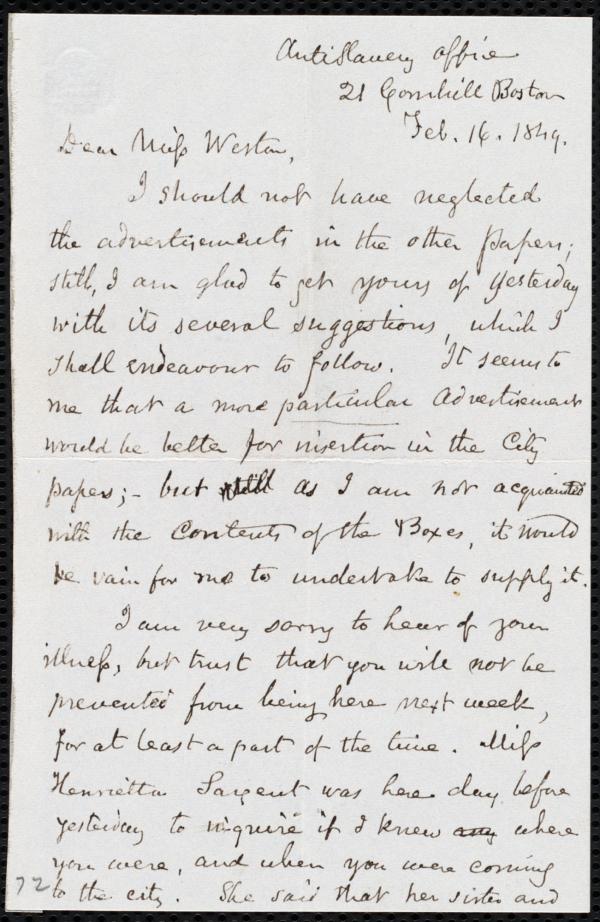 AntiSlavery office
21 Cornhill Boston
Feb. 16. 1849.
Dear Miss Weston,
I should not have neglected
the advertisements in the other papers;
still, I am glad to get yours of yesterday
with its several suggestions, which I
shall endeavour to follow. It seems to
me that a more particular advertisement
would be better for insertion in the City
papers; - but still as I am not acquainted
with the contents of the Boxes, it would
be vain for me to undertake to supply it.
I am very sorry to hear of your
illness, but trust that you will not be
prevented from being here next week,
for at least a part of the time. Miss
Henrietta Sargent was here day before
yesterday to inquire if I knew any where
you were, and when you were coming
to the city. She said that her sister and
72